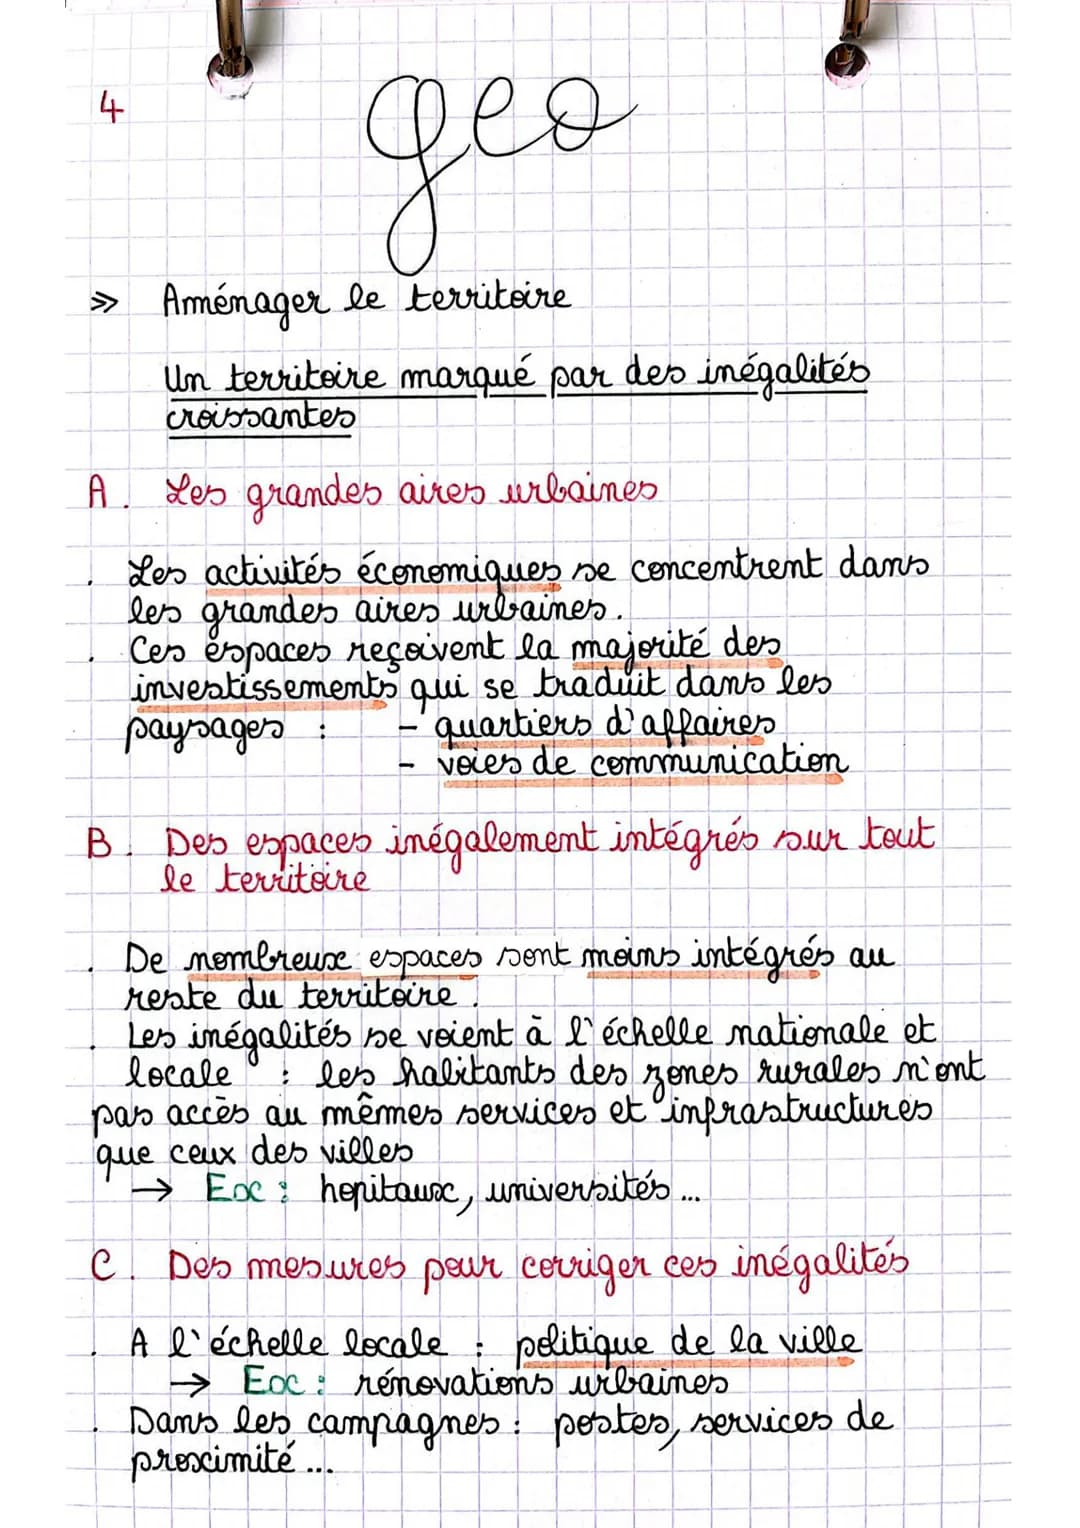 4
geo
>> Aménager le territoire
Un territoire marqué par des inégalités
croissantes
A. Les grandes aires urbaines
. Les activités économiques se concentrent dans
les grandes aires urbaines.
. Ces espaces reçoivent la majorité des
investissements qui se traduit dans les
paysages : - quartiers d'affaires
- voies de communication
B. Des espaces inégalement intégrés sur tout
le territoire
. De nombreux espaces sont moins intégrés au
reste du territoire.
. Les inégalités se voient à l'échelle nationale et
locale : les habitants des zones rurales n'ont
pas accès au mêmes services et infrastructures
que ceux des villes
→ Ex : hopitaux, universités...
C. Des mesures pour corriger ces inégalités
. A l'échelle locale : politique de la ville
→ Ex : rénovations urbaines
. Dans les campagnes : postes, services de
proximité...